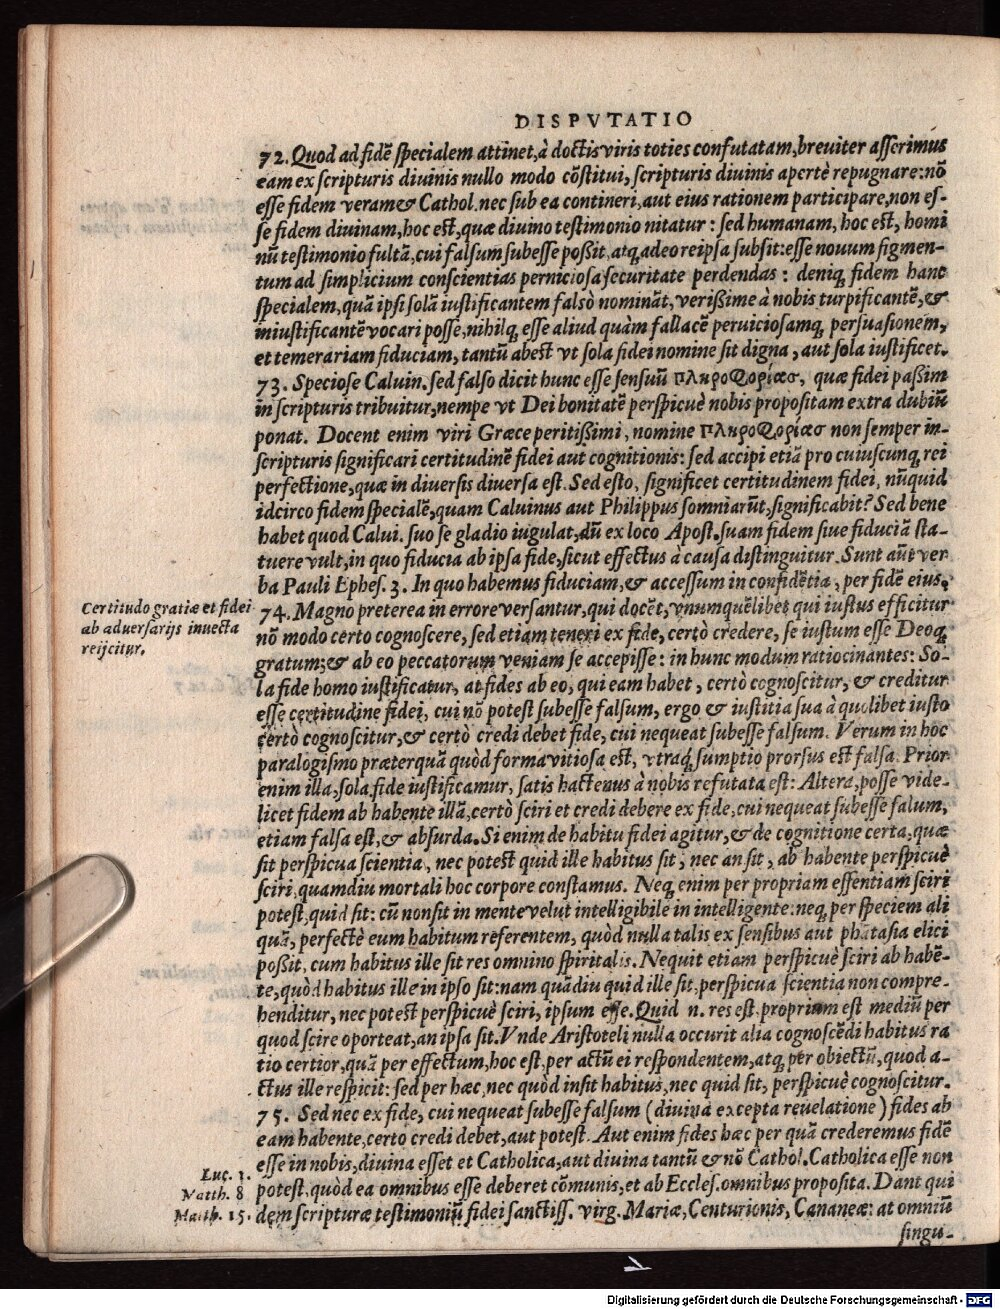 DISPVTATIO
72. Quod ad fidē specialem attinet, à doctis viris toties confutatam, breuiter asserimus
eam ex scripturis diuinis nullo modo cōstitui, scripturis diuinis apertè repugnare: nō
esse fidem veram & Cathol. nec sub ea contineri, aut eius rationem participare, non es-
se fidem diuinam, hoc est, quæ diuino testimonio nitatur: sed humanam, hoc est, homi
nū testimonio fultā, cui falsum subesse poßit, atq, adeo reipsa subsit: esse nouum figmen-
tum ad simplicium conscientias perniciosa securitate perdendas: deniq, fidem hanc
specialem, quā ipsi solā iustificantem falsò nominãt, verißime à nobis turpificantē, &
iniustificantē vocari posse, nihilq, esse aliud quàm fallacē peruiciosamq, persuasionem,
et temerariam fiduciam, tantū abest vt sola fidei nomine sit digna, aut sola iustificet.
73. Speciose Caluin. sed falso dicit hunc esse sensuū πληροφορίασ, quæ fidei paßim
in scripturis tribuitur, nempe vt Dei bonitatē perspicuè nobis propositam extra dubiū
ponat. Docent enim viri Græce peritißimi, nomine πληροφορίασ non semper in-
scripturis significari certitudinē fidei aut cognitionis: sed accipi etiā pro cuiuscunq, rei
perfectione, quæ in diuersis diuersa est. Sed esto, significet certitudinem fidei, nūquid
idcirco fidem specialē, quam Caluinus aut Philippus somniarūt, significabit? Sed bene
habet quod Calui. suo se gladio iugulat, dū ex loco Apost. suam fidem siue fiduciā sta-
tuere vult, in quo fiducia ab ipsa fide, sicut effectus à causa distinguitur. Sunt aūt ver
ba Pauli Ephes. 3. In quo habemus fiduciam, & accessum in confidētia, per fidē eius.
Certitudo gratiæ et fidei
ab aduersarijs inuecta
reijcitur.
74. Magno preterea in errore versantur, qui docēt, vnumquēlibet qui iustus efficitur
nō modo certo cognoscere, sed etiam teneri ex fide, certò credere, se iustum esse Deoq,
gratum; & ab eo peccatorum veniam se accepisse: in hunc modum ratiocinantes: So-
la fide homo iustificatur, at fides ab eo, qui eam habet, certò cognoscitur, & creditur
esse certitudine fidei, cui nō potest subesse falsum, ergo & iustitia sua à quolibet iusto
certò cognoscitur, & certò credi debet fide, cui nequeat subesse falsum. Verum in hoc
paralogismo præterquā quòd forma vitiosa est, vtraq, sumptio prorsus est falsa. Prior
enim illa, sola fide iustificamur, satis hactenus à nobis refutata est: Altera, posse vide-
licet fidem ab habente illā, certò sciri et credi debere ex fide, cui nequeat subesse falum,
etiam falsa est, & absurda. Si enim de habitu fidei agitur, & de cognitione certa, quæ
sit perspicua scientia, nec potest quid ille habitus sit, nec an sit, ab habente perspicuè
sciri, quamdiu mortali hoc corpore constamus. Neq, enim per propriam essentiam sciri
potest, quid sit: cū non sit in mente velut intelligibile in intelligente: neq, per speciem ali
quā, perfectè eum habitum referentem, quòd nulla talis ex sensibus aut phātasia elici
poßit, cum habitus ille sit res omnino spiritalis. Nequit etiam perspicuè sciri ab habē-
te, quòd habitus ille in ipso sit: nam quādiu quid ille sit, perspicua scientia non compre-
henditur, nec potest perspicuè sciri, ipsum esse. Quid n. res est, proprium est mediū per
quod scire oporteat, an ipsa sit. Vnde Aristoteli nulla occurit alia cognoscēdi habitus ra
tio certior, quā per effectum, hoc est, per actū ei respondentem, atq, per obiectū, quod a-
ctus ille respicit: sed per hæc, nec quòd insit habitus, nec quid sit, perspicuè cognoscitur.
75. Sed nec ex fide, cui nequeat subesse falsum (diuina excepta reuelatione) fides ab
eam habente, certo credi debet, aut potest. Aut enim fides hæc per quā crederemus fidē
esse in nobis, diuina esset et Catholica, aut diuina tantū & nō Cathol. Catholica esse non
Luc. 1.
Matth. 8
Matth. 15.
potest, quòd ea omnibus esse deberet cōmunis, et ab Eccles. omnibus proposita. Dant qui
dem scripturæ testimoniū fidei sanctiss. virg. Mariæ, Centurionis, Cananeæ: at omniū
singu-
Digitalisierung gefördert durch die Deutsche Forschungsgemeinschaft - DFG